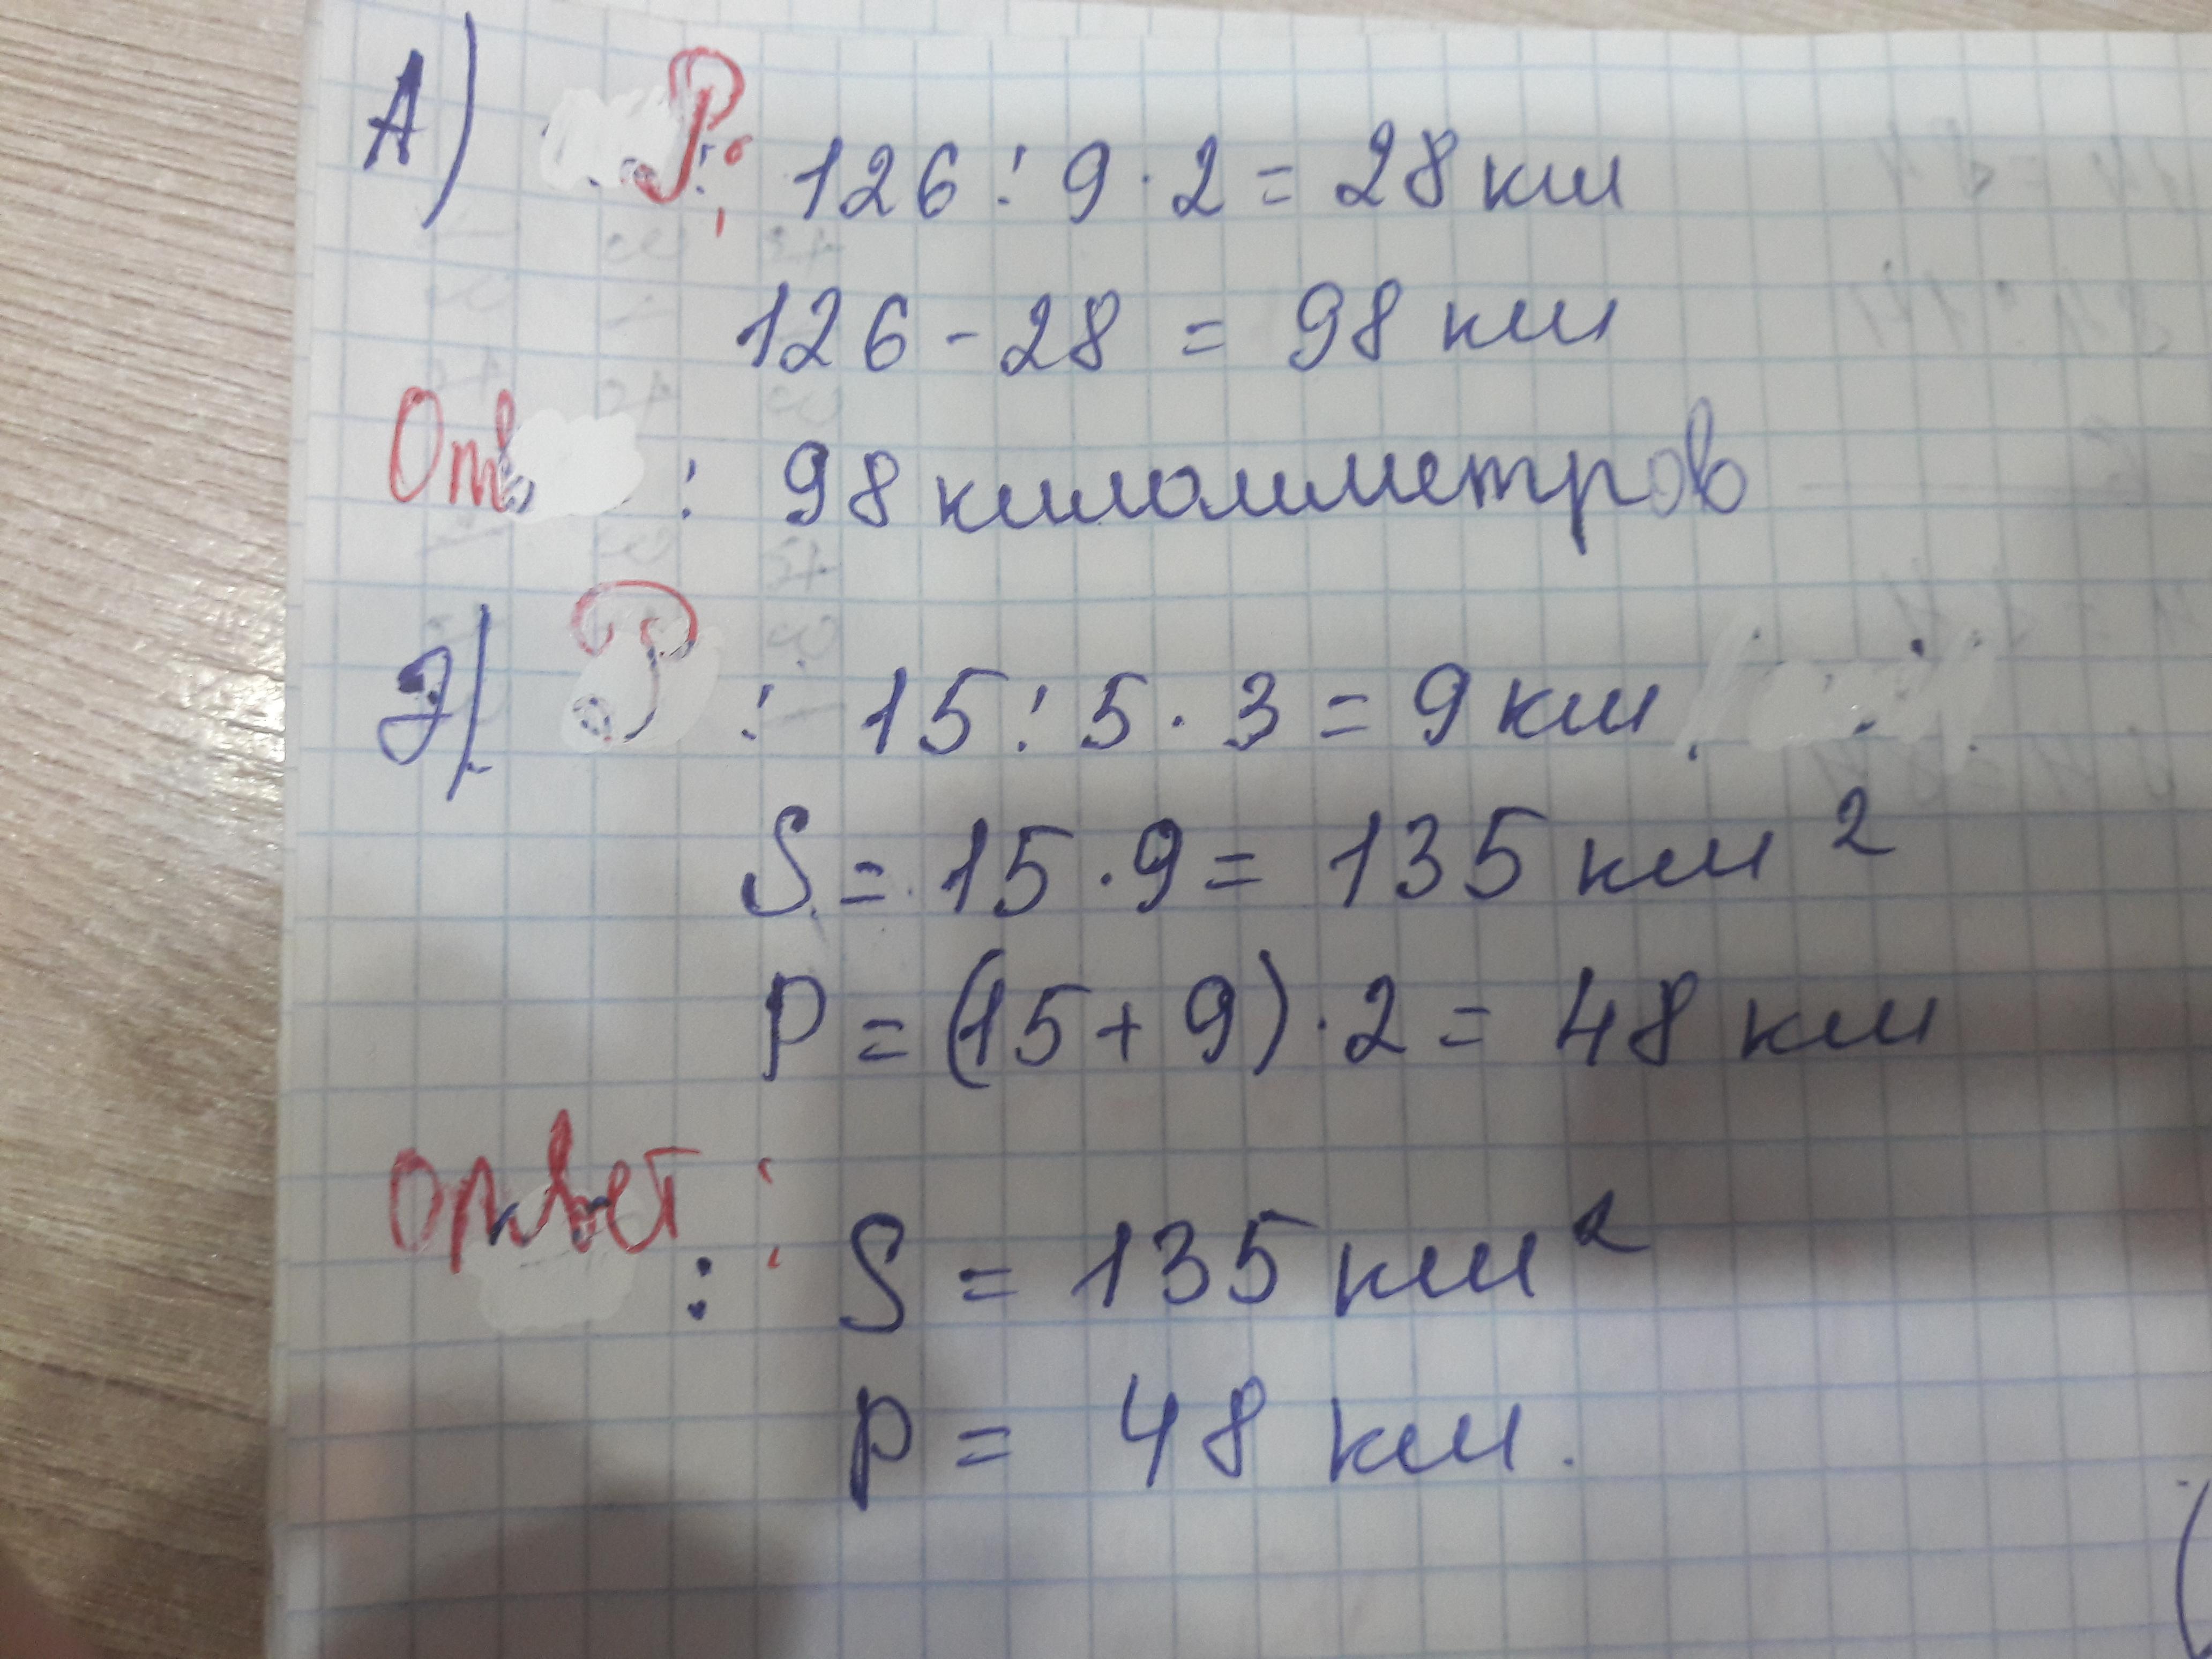 А) Р: 126 : 9 · 2 = 28 км
126 - 28 = 98 км
Отв : 98 километров
Э) Р : 15 : 5 · 3 = 9 км
S = 15 · 9 = 135 км²
P = (15 + 9) · 2 = 48 км
Ответ : S = 135 км²
P = 48 км.